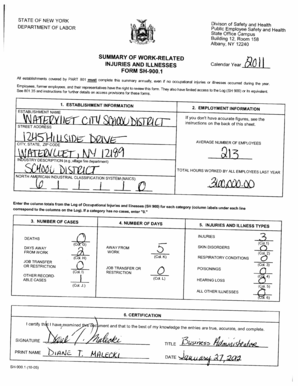 STATE OF NEW YORK
DEPARTMENT OF LABOR
Division of Safety and Health
Public Employee Safety and Health
State Office Campus
Building 12, Room 158
Albany, NY 12240
SUMMARY OF WORK-RELATED
INJURIES AND ILLNESSES
FORM SH-900.1
Calendar Year 2011
All establishments covered by PART 801 must complete this summary annually, even if no occupational injuries or illnesses occurred during the year.
Employees, former employees, and their representatives have the right to review this form. They also have limited access to the Log (SH 900) or its equivalent.
See 801.35 and instructions for further details on access provisions for these forms.
1. ESTABLISHMENT INFORMATION
ESTABLISHMENT NAME
WATERVLIET CITY SCHOOL DISTRICT
STREET ADDRESS
1245 HILLSIDE DRIVE
CITY, STATE, ZIP CODE
WATERVLIET, NY 12189
INDUSTRY DESCRIPTION (e.g. village fire department)
SCHOOL DISTRICT
NORTH AMERICAN INDUSTRIAL CLASSIFICATION SYSTEM (NAICS)
6 1 1 1 1 0
2. EMPLOYMENT INFORMATION
If you don't have accurate figures, see the
instructions on the back of this sheet.
AVERAGE NUMBER OF EMPLOYEES
213
TOTAL HOURS WORKED BY ALL EMPLOYEES LAST YEAR
300,000.00
Enter the column totals from the Log of Occupational Injuries and Illnesses (SH 900) for each category (column labels under each line
correspond to the columns on the Log). If a category has no cases, enter "0."
3. NUMBER OF CASES
DEATHS 0
(Col. G)
DAYS AWAY
FROM WORK 2
(Col. H)
JOB TRANSFER
OR RESTRICTION 0
(Col. I)
OTHER RECORD
ABLE CASES 1
(Col. J)
4. NUMBER OF DAYS
AWAY FROM
WORK 5
(Col. K)
JOB TRANSFER OR
RESTRICTION 0
(Col. L)
5. INJURIES AND ILLNESS TYPES
INJURIES 3
SKIN DISORDERS 0
RESPIRATORY CONDITIONS 0
POISONINGS 0
HEARING LOSS 0
ALL OTHER ILLNESSES 0
6. CERTIFICATION
I certify that I have examined this document and that to the best of my knowledge the entries are true, accurate, and complete.
SIGNATURE Diane T. Malecki
TITLE Business Administrator
PRINT NAME DIANE T. MALECKI
DATE January 27, 2012
SH-900.1 (10-05)